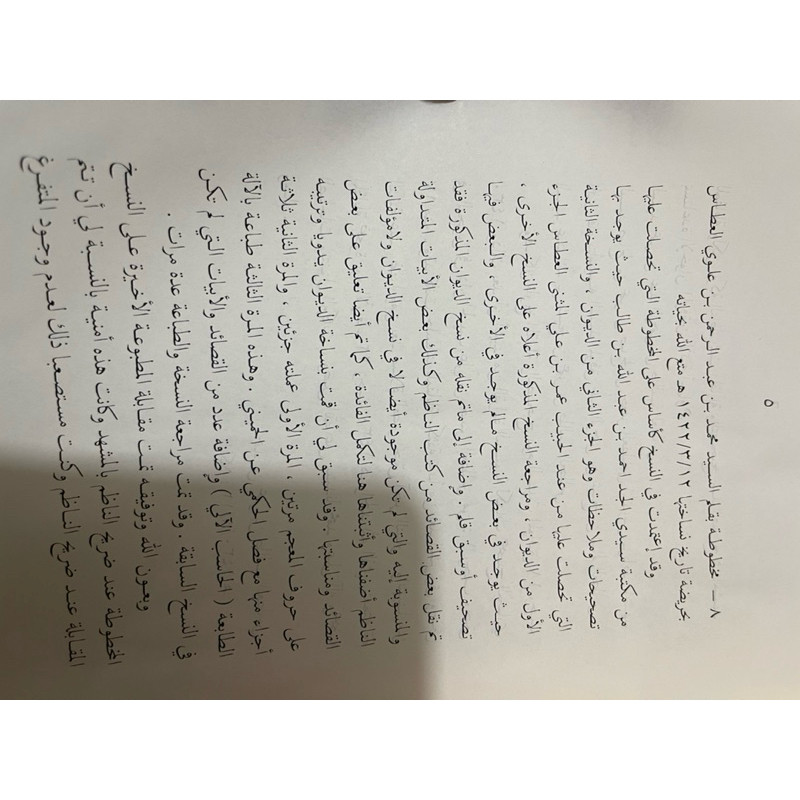 ٥
٨ – مخطوطة بقلم السيد محمد بن عبد الرحمن بن علوي العطاس
بحريضة تاريخ نساختها ١٤٢٢/٣/١٢ هـ متع الله بحياته
وقد إعتمدت في النسخ كأساس على المخطوطة التي تحصلت عليها
من مكتبة سيدي الجد احمد بن عبد الله بن طالب حيث يوجد بها
تصحيحات وملاحظات وهو الجزء الثاني من الديوان ، والنسخة الثانية
التي تحصلت عليها من عند الحبيب عمر بن علي المثنى العطاس الجزء
الأول من الديوان ، ومراجعة النسخ المذكورة أعلاه على النسخ الأخرى ،
حيث يوجد في بعض النسخ مالم يوجد في الأخرى ، والبعض فيها
تصحيف أوسبق قلم . وإضافة إلى ماتم نقله من نسخ الديوان المذكورة فقد
تم نقل بعض القصائد من كتب الناظم وكذلك بعض الأبيات المتداولة
والمنسوبة إليه والتي لم تكن موجودة أيضا لا في نسخ الديوان ولامؤلفات
الناظم أضفناها وأثبتناها هنا لتكمل الفائدة ، كما تم أيضا تعليق على بعض
القصائد ومناسبتها . وقد سبق لي أن قمت بنساخة الديوان يدويا وترتيبه
على حروف المعجم مرتين ، المرة الأولى عملته جزئين ، والمرة الثانية ثلاثة
أجزاء منها مع فصل الحكمي عن الحميني . وهذه المرة الثالثة طباعة بالآلة
الطابعة ( الحاسب الآلي ) وإضافة عدد من القصائد والأبيات التي لم تكن
في النسخ السابقة . وقد تمت مراجعة النسخة والطباعة عدة مرات .
وبعون الله وتوفيقه تمت مقابلة المطبوعة الأخيرة على النسخ
المخطوطة عند ضريح الناظم بالمشهد وكانت هذه أمنية بالنسبة لي أن تتم
المقابلة عند ضريح الناظم وكنت مستصعبا ذلك لعدم وجود المتفرغ